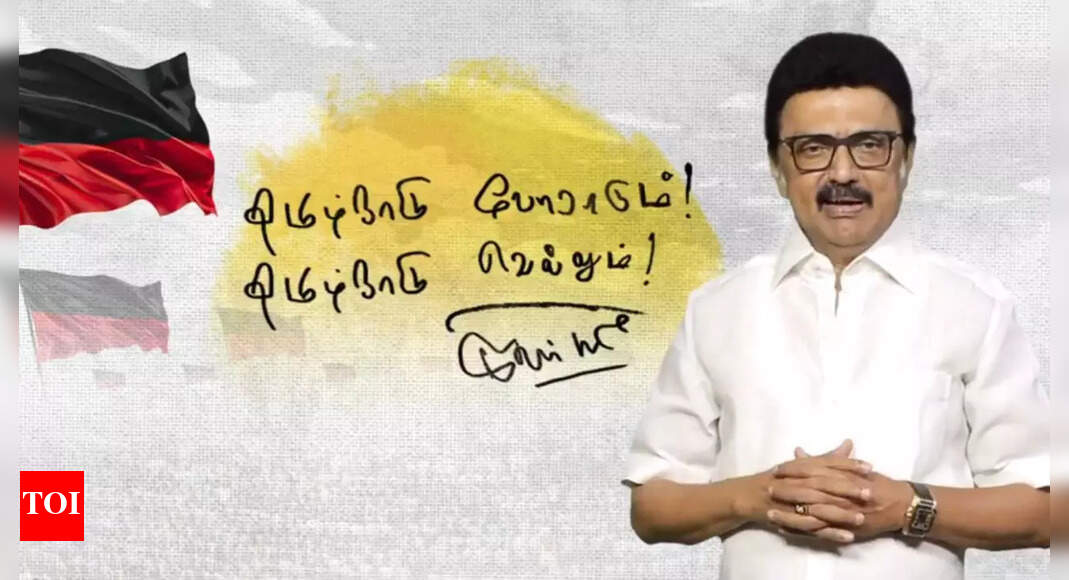 தமிழ்நாடு போராடும்!
தமிழ்நாடு வெல்லும்!
TOI